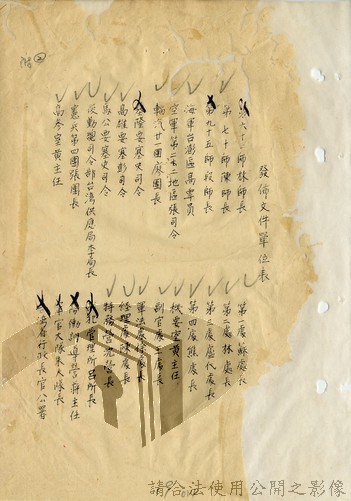 發佈文件單位表
第六十二師林師長
第七十師陳師長
第九十五師段師長
海軍台澎區高專員
空軍第二十二地區張司令
輜汽廿一團廖團長
基隆要塞史司令
高雄要塞彭司令
馬公要塞史司令
後勤總司令部台灣供應局李局長
憲兵第四團張團長
高參室黃主任
第一處蘇處長
第二處林處長
第三處盧代處長
第四處熊處長
機要室黃主任
副官處王處長
軍法處處長
經理處陳處長
特務營沈營長
管理所呂所長
新導營蔣主任
軍官大隊朱大隊長
台灣省行政長官公署
請合法使用公開之影像